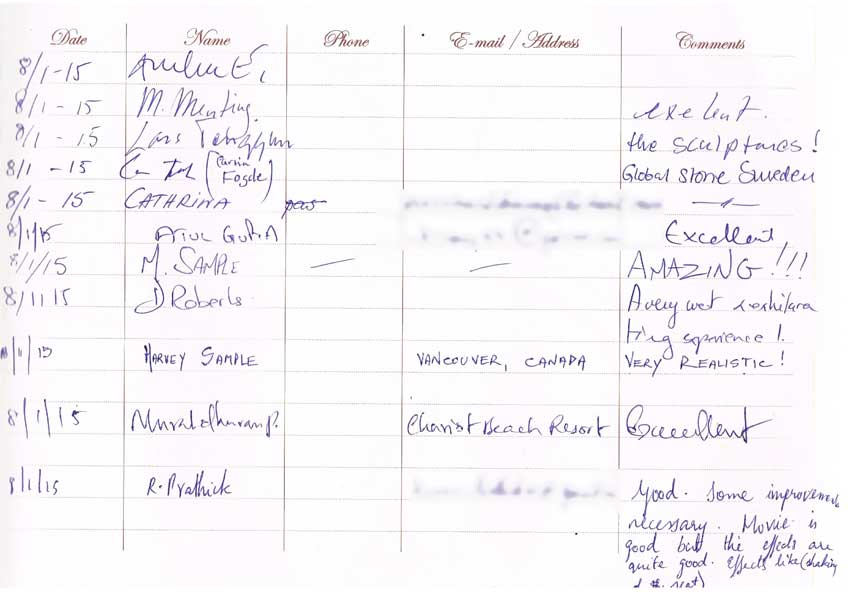 Date Name Phone E-mail / Address Comments
8/1-15
8/1-15 M. Menting. exelent.
8/1-15 Lars the sculptures!
8/1-15 (Carin Fogde) Global Stone Sweden
8/1-15 CATHRINA
8/1/15 ATUL GUPTA Excellent,
8/1/15 M. SAMPLE — — AMAZING!!!
8/1/15 D Roberts. A very wet & exhilara
ting experience!.
8/1/15 HARVEY SAMPLE VANCOUVER, CANADA VERY REALISTIC!
8/1/15 Muralidharan P. Chariot Beach Resort Excellent
8/1/15 R. Prathick Good. Some improvements
necessary. Movie is
good but the effects are
quite good. Effects like (shaking
seat)